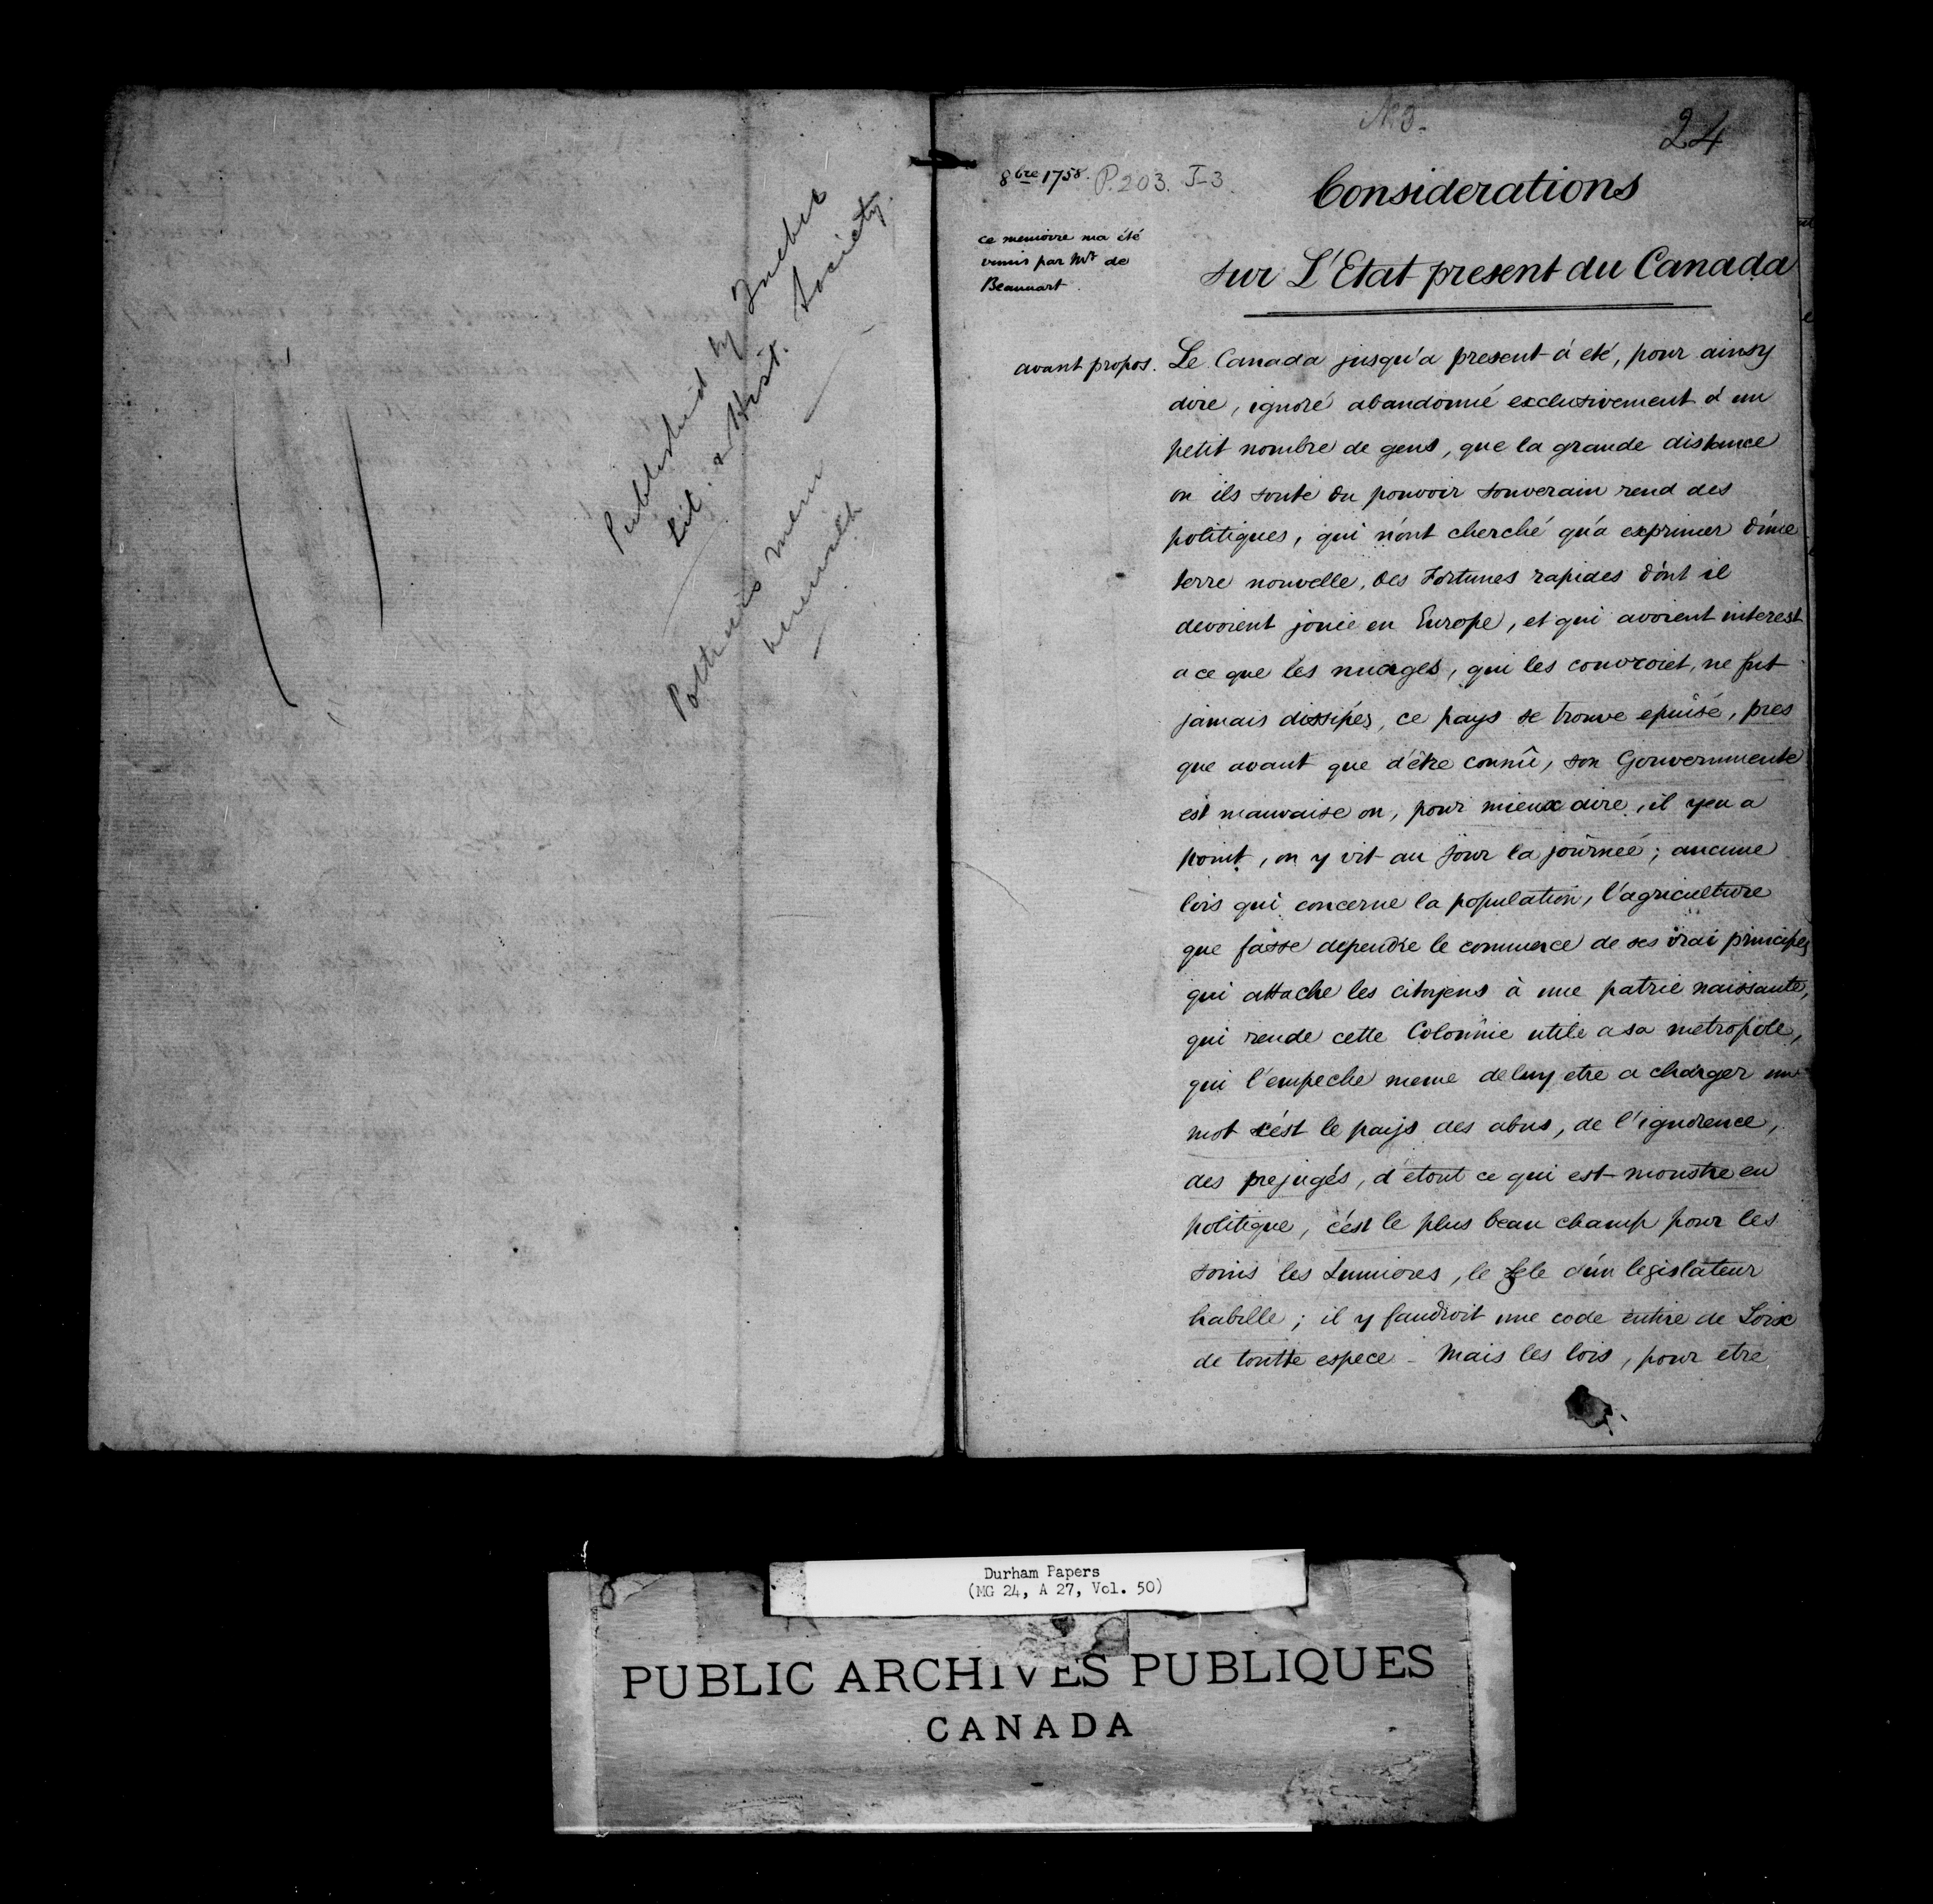 Published by Quebec
Lit. & Hist. Society.
No 3.
24
8bre 1758. P. 203. I-3
Considerations
sur L'Etat present du Canada
ce memoire ma été
remis par Mr de
Beaumart.
avant propos.
Le Canada jusqu'a present á eté, pour ainsy
dire, ignoré abandonné exclusivement á un
petit nombre de gens, que la grande distance
on ils sonte du pouvoir souverain rend des
politiques, qui n'ont cherché qu'a exprimer d'une
terre nouvelle, des Fortunes rapides dont il
devoient jouie en Europe, et qui avoient interest
a ce que les nuages, qui les couvroiet, ne fut
jamais dissipés, ce pays se trouve epuisé, pres
que avant que d'être connû, son Gouvernmente
est mauvaise on, pour mieux dire, il yen a
point, on y vit au jour la journeé; aucune
lois qui concerne la population, l'agriculture
que fasse dependre le commerce de ses vrai principes
qui attache les citoyens à une patrie naissante,
qui rende cette Colonnie utile a sa metropole,
qui l'empeche meme de luy etre a charger un
mot c'est le pays des abus, de l'ignorence,
des prejugés, d etout ce qui est monstre en
politique, c'est le plus beau champ pour les
soins les Lumiores, le Zele d'un legislateur
habille; il y faudroit une code entire de Loix
de toutte espece - Mais les lois, pour etre
Durham Papers
(MG 24, A 27, Vol. 50)
PUBLIC ARCHIVES PUBLIQUES
CANADA